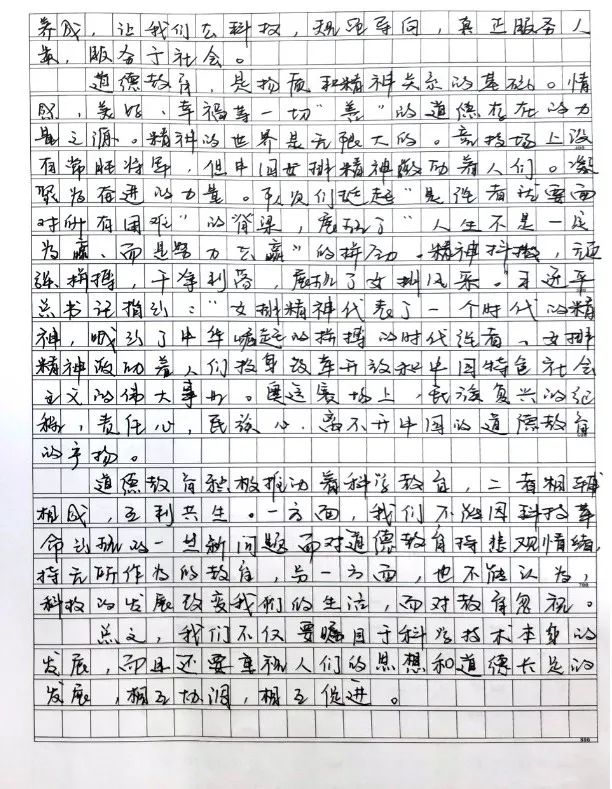 养成，让我们在科技，规范导向，真正服务人
类，服务于社会。
道德教育，是物质和精神关系的基础。情
熙，美好、幸福等一切“善”的道德存在的力
量之源。精神的世界是无限大的。竞技场上没
有常胜将军，但中国女排精神激励着人们。凝
聚为奋进的力量。队员们挺起“是强者就要面
对所有困难”的脊梁，展现了“人生不是一定
会赢，而是努力去赢”的拼劲。精神抖擞，顽
强拼搏，干净利落，展现了女排风采。习近平
总书记指引：“女排精神代表了一个时代的精
神，吼引了中华崛起的拼搏的时代强音。女排
精神激励着人们投身改革开放和中国特色社会
主义的伟大事业。奥运赛场上，民族复兴的征
程，责任心，民族心，离不开中国的道德教育
的产物。
道德教育积极推动着科学教育，二者相辅
相成，互利共生。一方面，我们不能因科技革
命出现的一些新问题而对道德教育持悲观情绪，
持无所作为的教育，另一方面，也不能认为，
科技的发展改变我们的生活，而对教育忽视。
总之，我们不仅要瞩目于科学技术本身的
发展，而且还要重视人们的思想和道德长足的
发展，相互协调，相互促进。
700
800